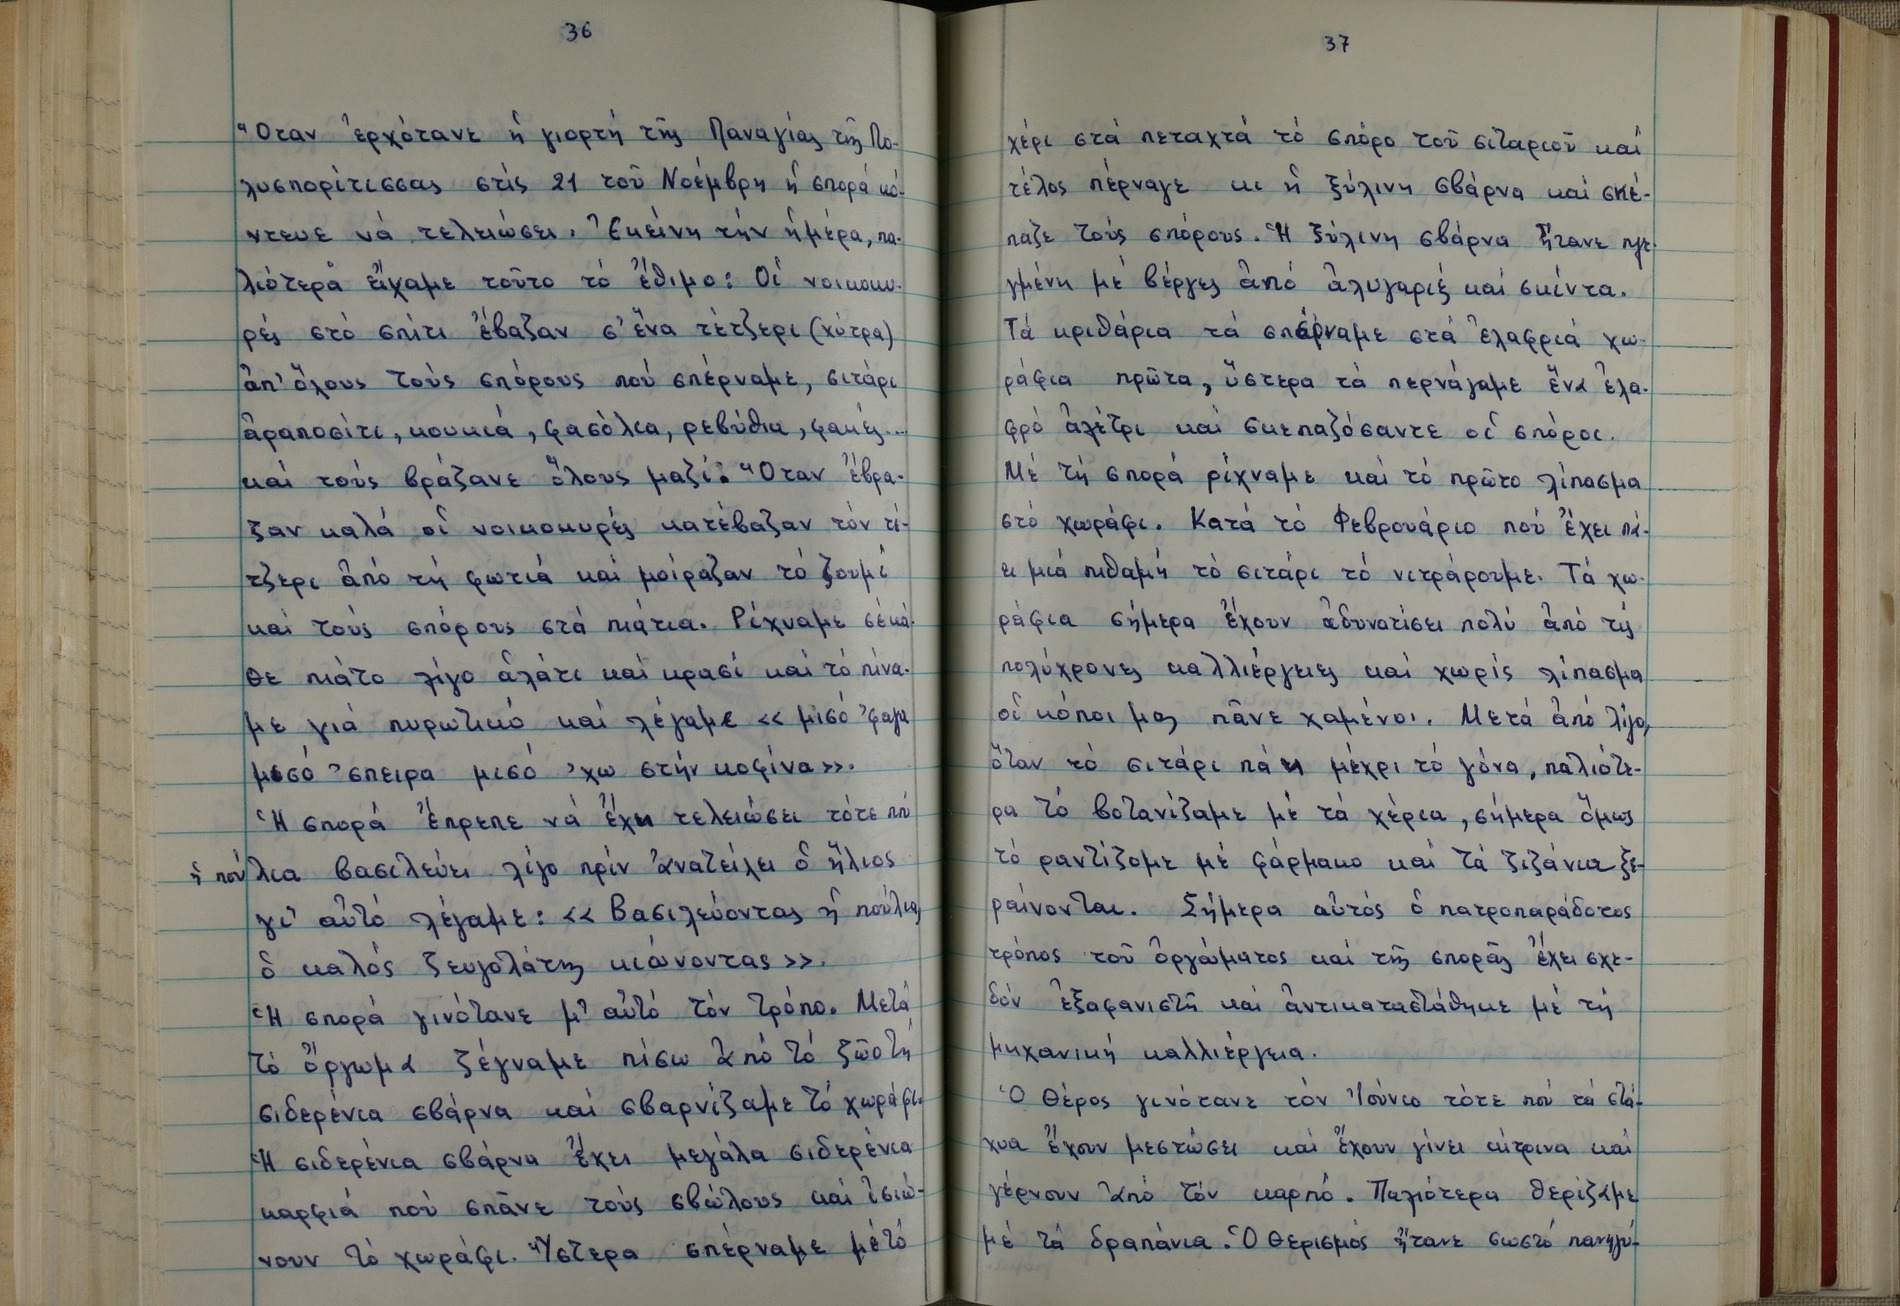 36
Ὅταν ἐρχότανε ἡ γιορτή τῆς Παναγίας τῆς Πο-
λυσπορίτισσας στίς 21 τοῦ Νοέμβρη ἡ σπορά κό-
ντευε νά τελειώσει. Ἐκείνη τήν ἡμέρα, πα-
λιότερα εἴχαμε τοῦτο τό ἔθιμο: Οἱ νοικοκυ-
ρές στό σπίτι ἔβαζαν σ' ἕνα τέτζερι (χύτρα)
ἀπ' ὅλους τούς σπόρους πού σπέρναμε, σιτάρι
ἀραποσίτι, κουκιά, φασόλια, ρεβύθια, φακές...
καί τούς βράζανε ὅλους μαζί. Ὅταν ἔβρα-
ζαν καλά οἱ νοικοκυρές κατέβαζαν τόν τέ-
τζερι ἀπό τή φωτιά καί μοίραζαν τό ζουμί
καί τούς σπόρους στά πιάτα. Ρίχναμε σέ κά-
θε πιάτο λίγο ἁλάτι καί κρασί καί τό πίνα-
με γιά πυρωτικό καί λέγαμε « μισό 'φαγα
μισό 'σπειρα μισό 'χω στήν κοφίνα».
Ἡ σπορά ἔπρεπε νά ἔχη τελειώσει τότε πού
ἡ πούλια βασιλεύει λίγο πρίν ἀνατείλει ὁ ἥλιος
γι' αὐτό λέγαμε: «Βασιλεύοντας ἡ πούλια,
ὁ καλός ζευγολάτης κιώνοντας».
Ἡ σπορά γινότανε μ' αὐτό τόν τρόπο. Μετά
τό ὄργωμα ζέγναμε πίσω ἀπό τό ζῶο τή
σιδερένια σβάρνα καί σβαρνίζαμε τό χωράφι.
Ἡ σιδερένια σβάρνα ἔχει μεγάλα σιδερένια
καρφιά πού σπᾶνε τούς σβώλους καί ἰσιώ-
νουν τό χωράφι. Ὕστερα σπέρναμε μέ τό
37
χέρι στά πεταχτά τό σπόρο τοῦ σιταριοῦ καί
τέλος πέρναγε κι ἡ ξύλινη σβάρνα καί σκέ-
παζε τούς σπόρους. Ἡ ξύλινη σβάρνα ἤτανε πλε-
γμένη μέ βέργες ἀπό ἀλυγαριές καί σκίντα.
Τά κριθάρια τά σπέρναμε στά ἐλαφριά χω-
ράφια πρῶτα, ὕστερα τά περνάγαμε ἕνα ἐλα-
φρό ἀλέτρι καί σκεπαζόσαντε οἱ σπόροι.
Μέ τή σπορά ρίχναμε καί τό πρῶτο λίπασμα
στό χωράφι. Κατά τό Φεβρουάριο πού ἔχει πά-
ει μιά πιθαμή τό σιτάρι τό νιτράρουμε. Τά χω-
ράφια σήμερα ἔχουν ἀδυνατίσει πολύ ἀπό τίς
πολύχρονες καλλιέργειες καί χωρίς λίπασμα
οἱ κόποι μας πᾶνε χαμένοι. Μετά ἀπό λίγο,
ὅταν τό σιτάρι πάη μέχρι τό γόνα, παλιότε-
ρα τό βοτανίζαμε μέ τά χέρια, σήμερα ὅμως
τό ραντίζομε μέ φάρμακο καί τά ζιζάνια ξε-
ραίνονται. Σήμερα αὐτός ὁ πατροπαράδοτος
τρόπος τοῦ ὀργώματος καί τῆς σπορᾶς ἔχει σχε-
δόν ἐξαφανιστῆ καί ἀντικαταστάθηκε μέ τή
μηχανική καλλιέργεια.
Ὁ θέρος γινότανε τόν Ἰούνιο τότε πού τά στά-
χυα ἔχουν μεστώσει καί ἔχουν γίνει κίτρινα καί
γέρνουν ἀπό τόν καρπό. Παλιότερα θερίζαμε
μέ τά δραπάνια. Ὁ θερισμός ἤτανε σωστό πανηγύ-